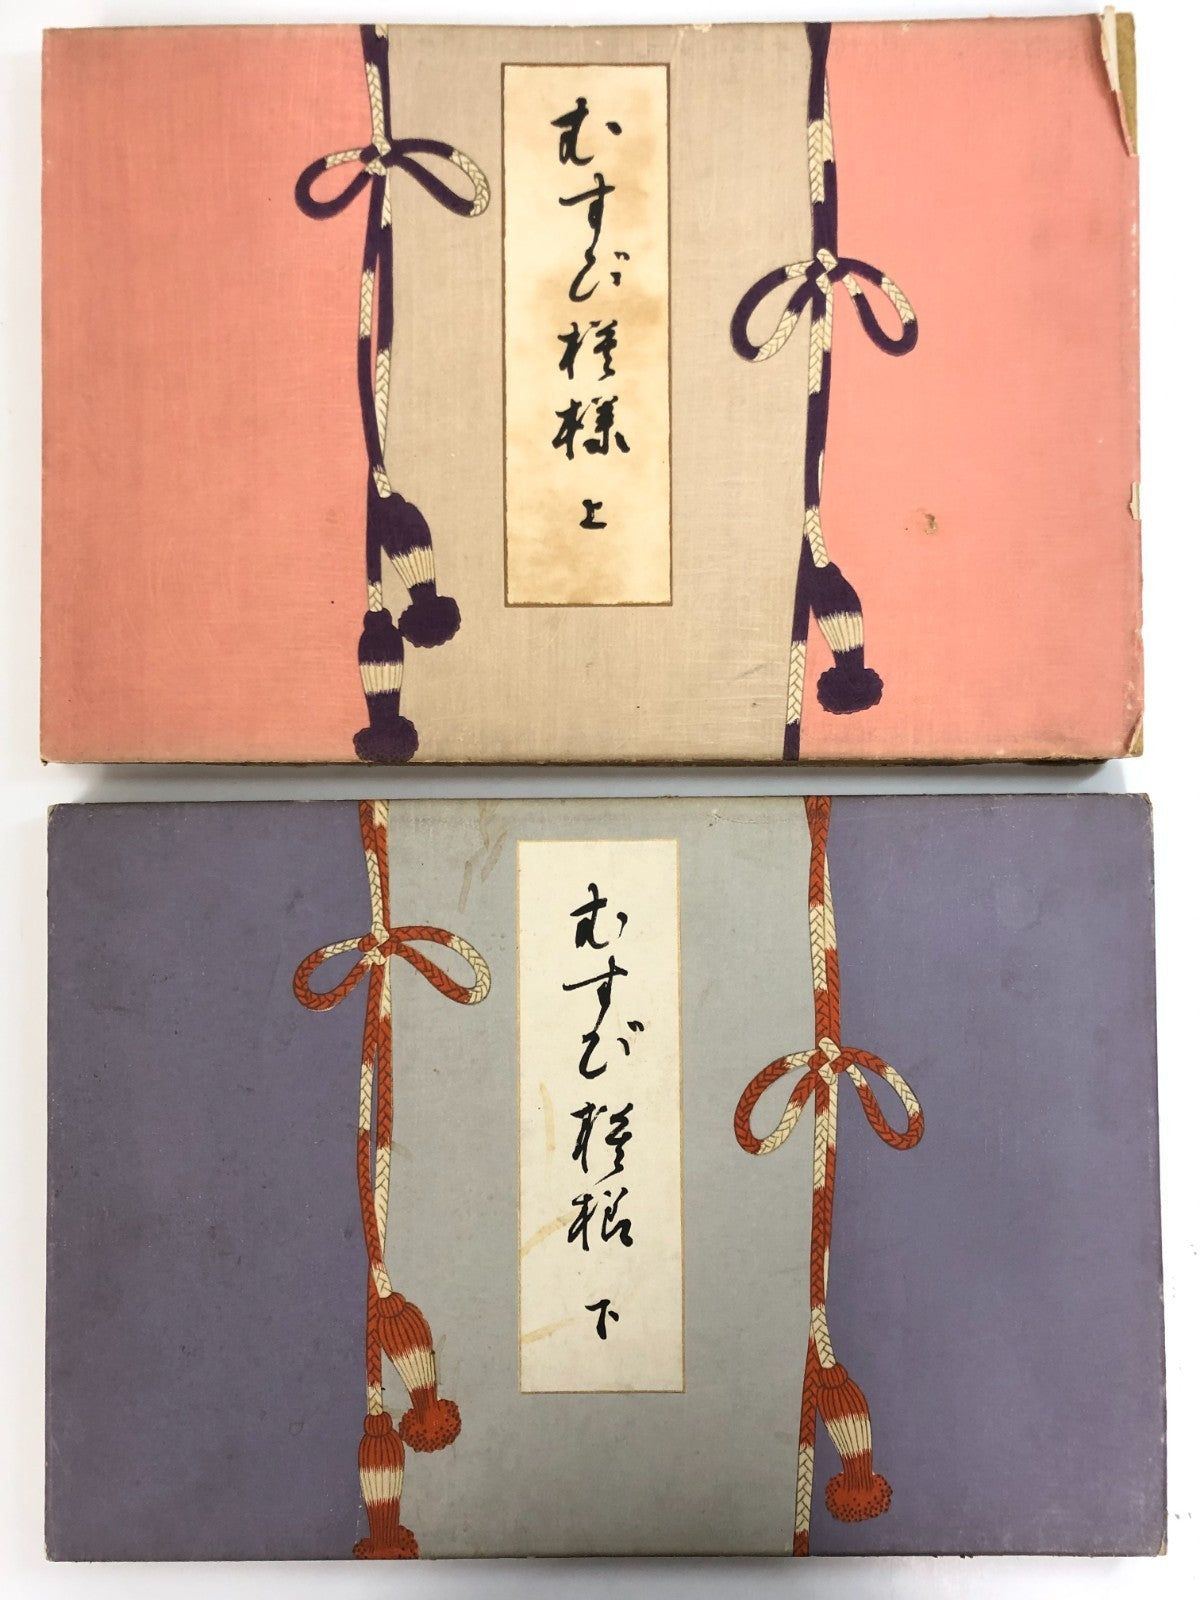 むすび模様 上
むすび模様 下